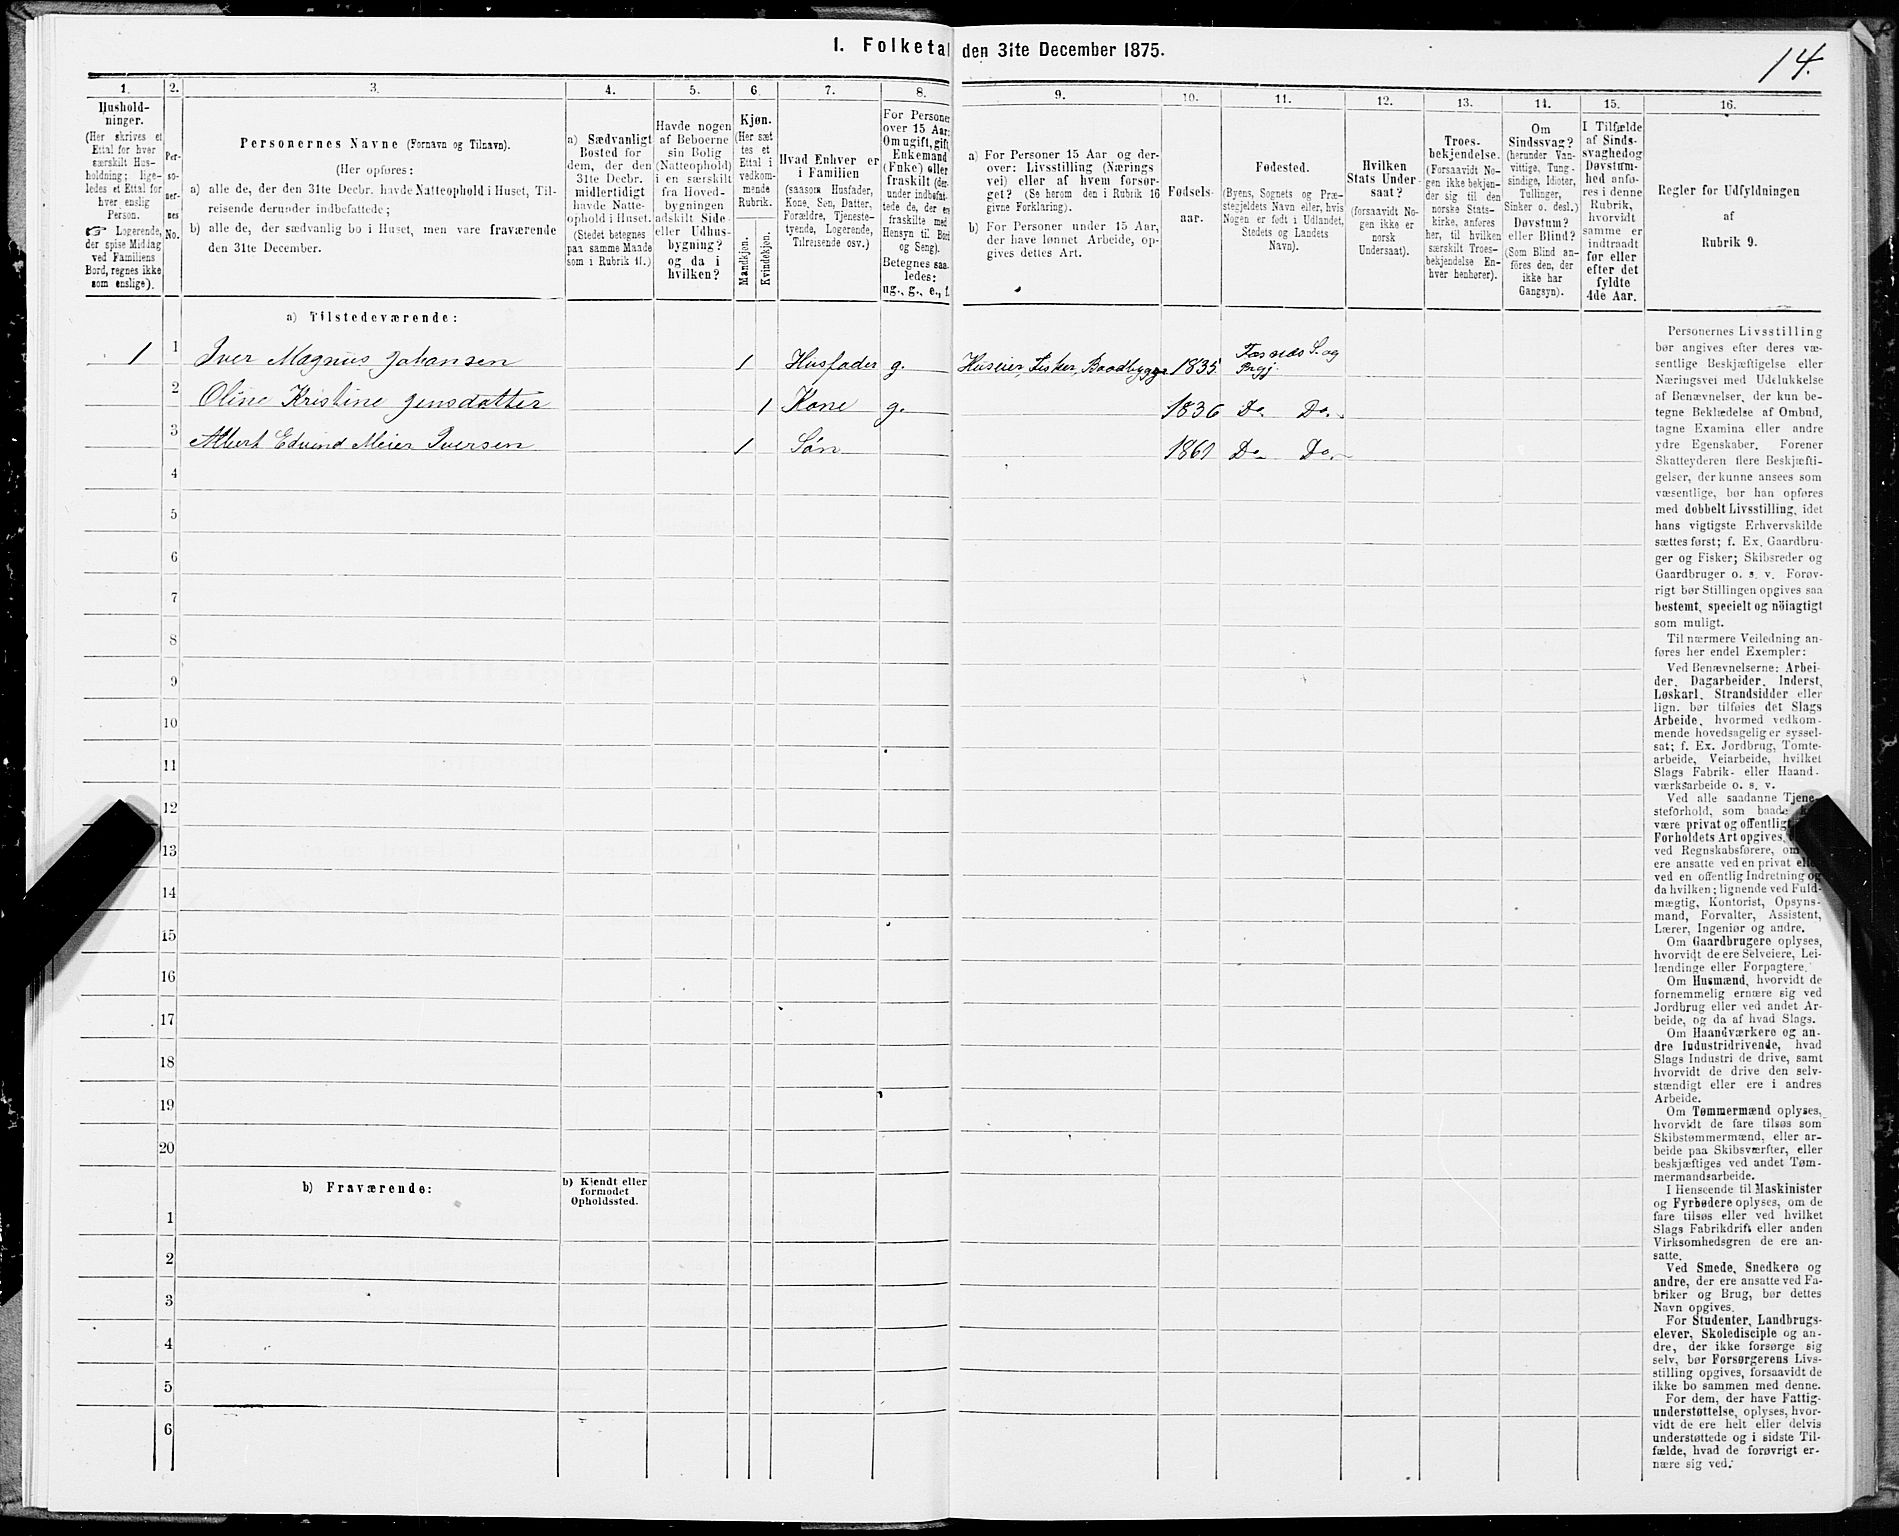 I. Folketal den 31te December 1875.
14.
1.
2.
3.
4.
5.
6.
7.
8.
9.
10.
11.
12.
13.
14.
15.
16.
Hushold-
ninger.
(Her skrives et
Ettal for hver
særskilt Hus-
holdning; lige-
ledes et Ettal for
hver enslig
Person.
☞ Logerende,
der spise Middag
ved Familiens
Bord, regnes ikke
som enslige).
Per-
so-
ner-
nes
No.
Personernes Navne (Fornavn og Tilnavn).
(Her opføres:
a) alle de, der den 31te Decbr. havde Natteophold i Huset, Til-
reisende derunder indbefattede;
b) alle de, der sædvanlig bo i Huset, men vare fraværende
den 31te December.
a) Sædvanligt
Bosted for
dem, der den
31te Decbr.
midlertidigt
havde Natte-
ophold i Huset.
(Stedet betegnes
paa samme Maade
som i Rubrik 11.)
Havde nogen
af Beboerne
sin Bolig
(Natteophold)
i en særskilt
fra Hoved-
bygningen
adskilt Side-
eller Udhus-
bygning?
og da i
hvilken?
Kjøn.
(Her sæt
tes et
Ettal i
vedkom-
mende
Rubrik.
Mandkjøn.
Kvindekjøn.
Hvad Enhver er
i Familien
(saasom Husfader,
Kone, Søn, Datter,
Forældre, Tjeneste-
tyende, Logerende,
Tilreisende osv.)
For Personer
over 15 Aar:
Om ugift, gift,
Enkemand
(Enke) eller
fraskilt (der-
under indbefat-
tede de, der ere
fraskilte med
Hensyn til Bord
og Seng).
Betegnes saa-
ledes:
ug., g., e., f.
a) For Personer 15 Aar og der-
over: Livsstilling (Nærings
vei) eller af hvem forsør-
get? (Se herom den i Rubrik 16
givne Forklaring).
b) For Personer under 15 Aar,
der have lønnet Arbeide, op-
gives dettes Art.
Fødsels-
aar.
Fødested.
(Byens, Sognets og Præ-
stegjeldets Navn eller, hvis
Nogen er født i Udlandet,
Stedets og Landets
Navn).
Hvilken
Stats Under
saat?
(forsaavidt No-
gen ikke er
norsk
Undersaat).
Troes-
bekjendelse.
(Forsaavidt No-
gen ikke bekjen-
der sig til den
norske Stats-
kirke, anføres
her, til hvilken
særskilt Troes-
bekjendelse En-
hver henhører).
Om
Sindssvag?
(herunder Van-
vittige, Tung-
sindige, Idioter,
Tullinger,
Sinker o. desl.)
Døvstum?
eller Blind?
(Som Blind an-
føres den, der
ikke har
Gangsyn).
I Tilfælde
af Sinds-
svaghed og
Døvstum-
hed anfø-
res i denne
Rubrik,
hvorvidt
samme er
indtraadt
før eller
efter det
fyldte
4de Aar.
Regler for Udfyldningen
af
Rubrik 9.
a) Tilstedeværende:
1 1 Iver Magnus Johansen 1 Husfader g. Huseier, Fisker, Baadbygger 1835 S. og
Prgj.
2 Oline Kristine Jensdatter 1 Kone g. 1836 Do. Do.
3 Albert Edvind Meier Iversen 1 Søn 1861 Do. Do.
4
5
6
7
8
9
10
11
12
13
14
15
16
17
18
19
20
b) Fraværende:
b) Kjendt eller
formodet
Opholdssted.
1
2
3
4
5
6
Personernes Livsstilling
bør angives efter deres væ-
sentlige Beskjæftigelse eller
Næringsvei med Udelukkelse
af Benævnelser, der kun be-
tegne Beklædelse af Ombud,
tagne Examina eller andre
ydre Egenskaber. Forener
Skatteyderen flere Beskjæfti-
gelser, der kunne ansees som
væsentlige, bør han opføres
med dobbelt Livsstilling, idet
hans vigtigste Erhvervskilde
sættes først; f. Ex. Gaardbru-
ger og Fisker; Skibsreder og
Gaardbruger o. s. v. Forøv-
rigt bør Stillingen opgives saa
bestemt, specielt og nöiagtigt
som muligt.
Til nærmere Veiledning an-
føres her endel Exempler:
Ved Benævnelserne: Arbei-
der, Dagarbeider, Inderst,
Løskarl, Strandsidder eller
lign. bør tilføies det Slags
Arbeide, hvormed vedkom-
mende hovedsagelig er syssel-
sat; f. Ex. Jordbrug, Tomte-
arbeide, Veiarbeide, hvilket
Slags Fabrik- eller Haand-
værksarbeide o. s. v.
Ved alle saadanne Tjene-
steforhold, som baade
være privat og offentlig
Forholdets Art opgives,
ved Regnskabsførere, om
ere ansatte ved en privat eller
ved en offentlig Indretning og
da hvilken; lignende ved Fuld-
mægtig, Kontorist, Opsyns-
mand, Forvalter, Assistent,
Lærer, Ingeniør og andre.
Om Gaardbrugere oplyses,
hvorvidt de ere Selveiere, Lei-
lændinge eller Forpagtere.
Om Husmænd, hvorvidt de
fornemmelig ernære sig ved
Jordbrug eller ved andet Ar-
beide, og da af hvad Slags.
Om Haandværkere og an-
dre Industridrivende, hvad
Slags Industri de drive, samt
hvorvidt de drive den selv-
stændigt eller ere i andres
Arbeide.
Om Tømmermænd oplyses,
hvorvidt de fare tilsøs som
Skibstømmermænd, eller ar-
beide paa Skibsværfter, eller
beskjæftiges ved andet Tøm-
mermandsarbeide.
I Henseende til Maskinister
og Fyrbødere oplyses, om de
fare tilsøs eller ved hvilket
Slags Fabrikdrift eller anden
Virksomhedsgren de ere an-
satte.
Ved Smede, Snedkere og
andre, der ere ansatte ved Fa-
briker og Brug, bør dettes
Navn opgives.
For Studenter, Landbrugs-
elever, Skoledisciple og an-
dre, der ikke forsørge sig
selv, bør Forsørgerens Livs-
stilling opgives, forsaavidt de
ikke bo sammen med denne.
For dem, der have Fattig-
understøttelse, oplyses, hvor-
vidt de ere helt eller delvis
understøttede og i sidste Til-
fælde, hvad de forøvrigt er-
nære sig ved.